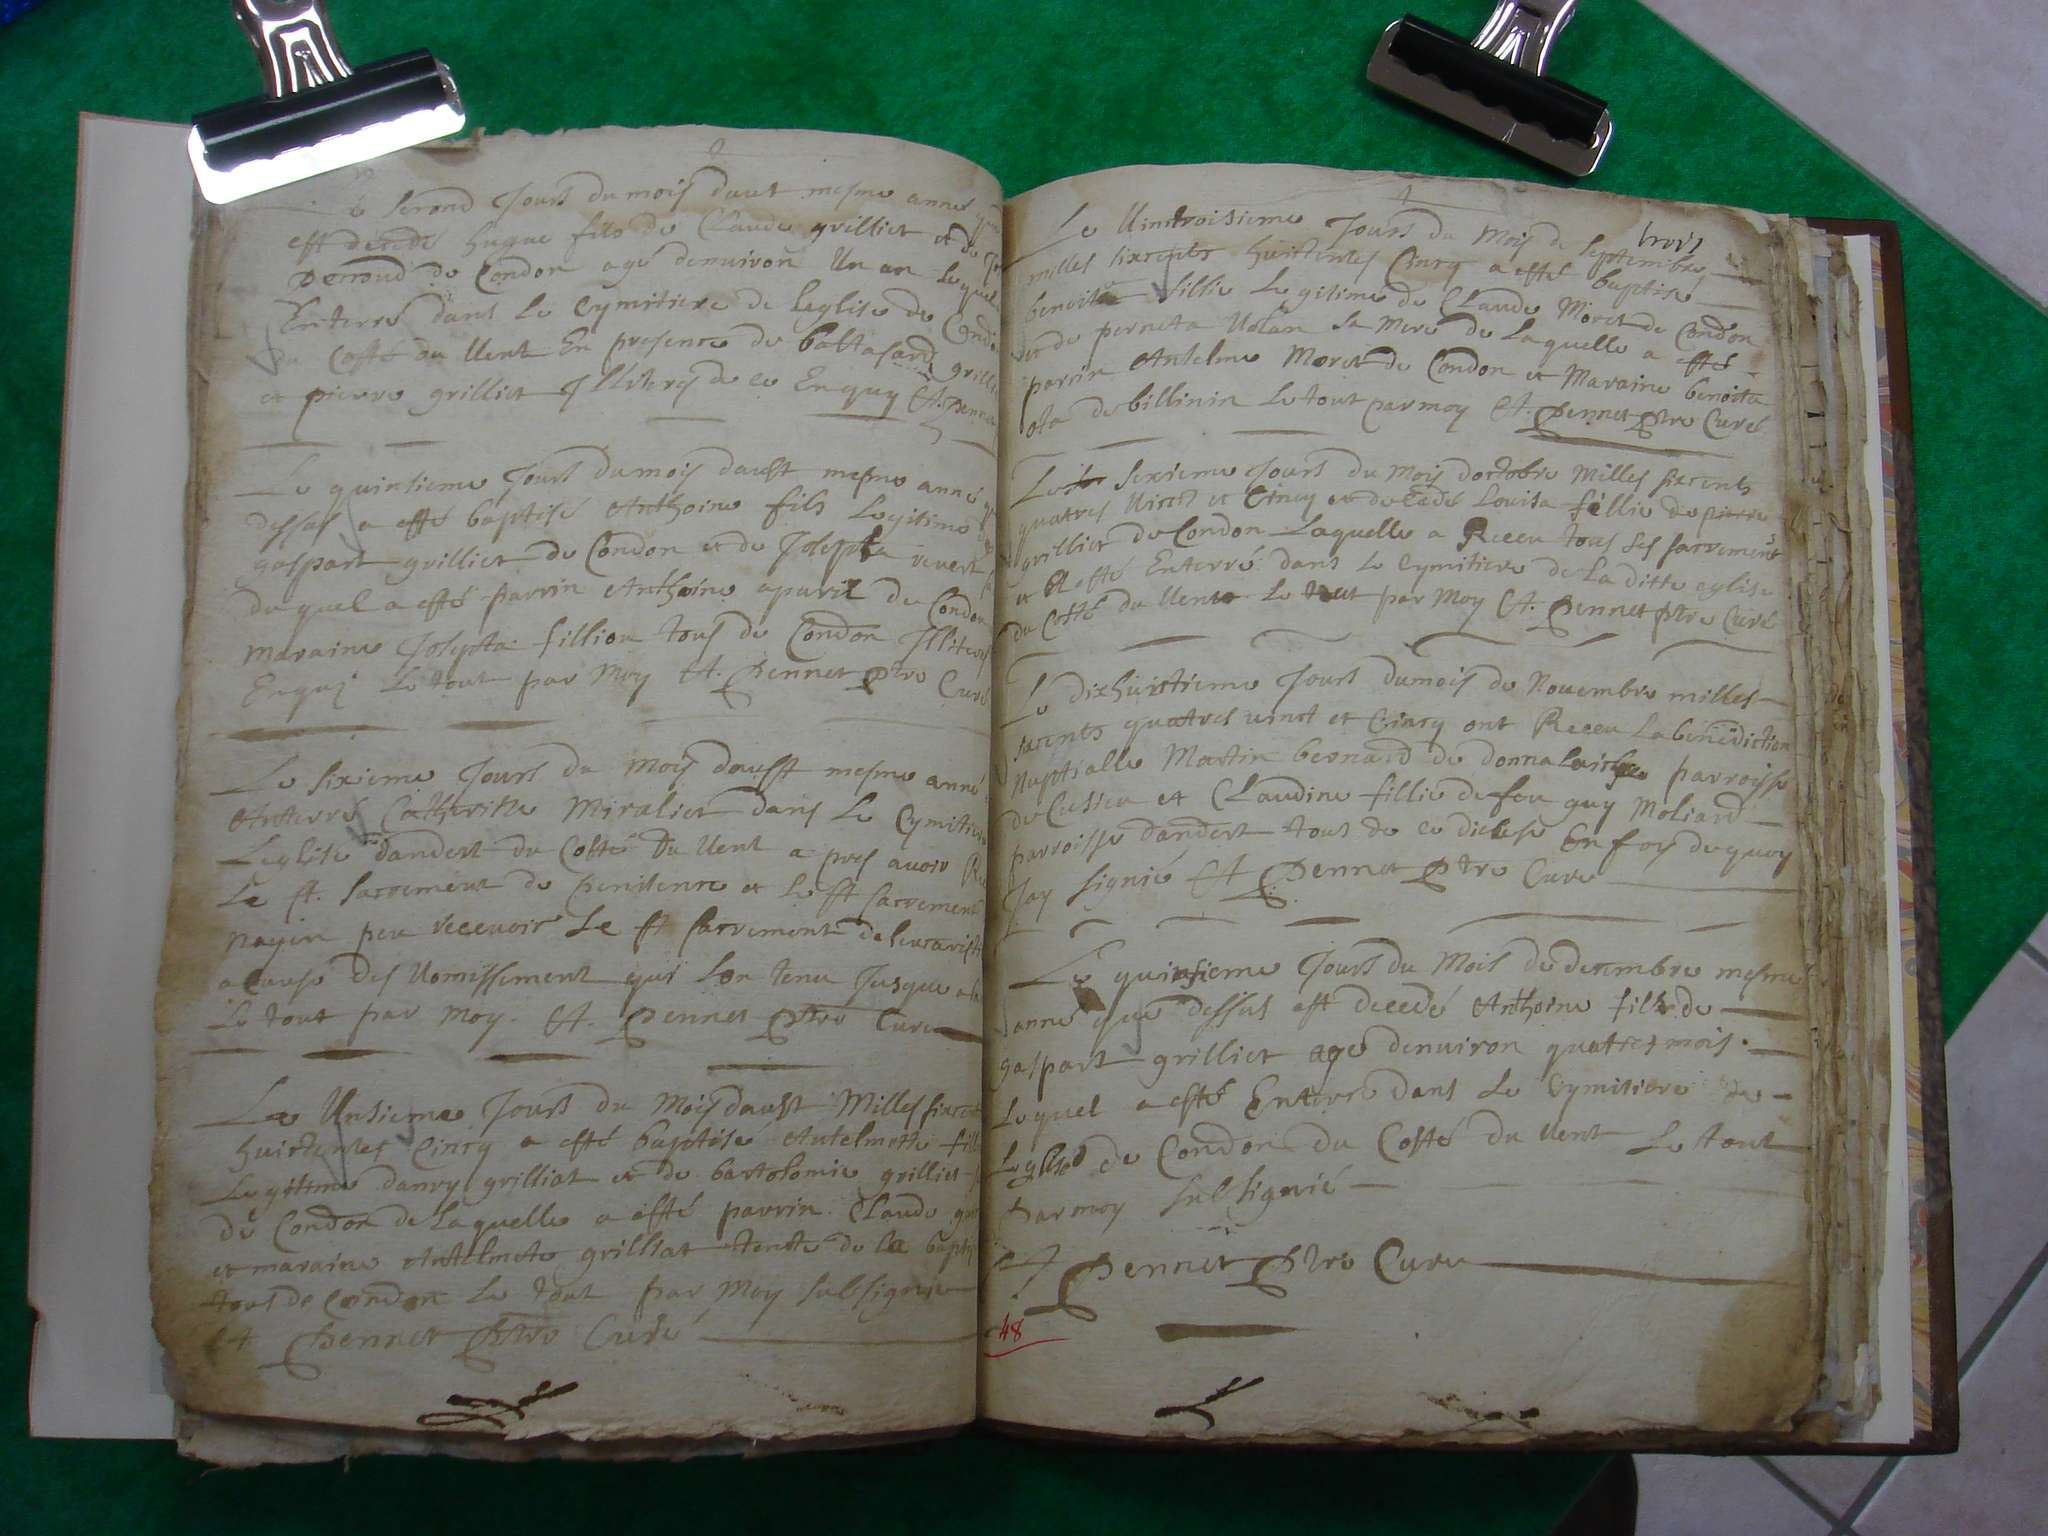 Le second Jours du mois daut mesme anné que
est decedé hugue fils de Claude grilliet et de
perroud de Condon agé denuiron Un an Lequel
Enterré dans Le Cymitiere de leglise de Condon
du Costé du Uent En presence de baltasard grilliet
et pierre grilliet Jlliterés de ce Enquy A. Pennet
Le quinsieme Jours du mois daust mesme anné que
dessus a esté baptisé Anthoine fils Legitime de
gaspart grilliet de Condon et de Josepta revert
du quel a esté parrin Anthoine apuril de Condon
maraine Josepta fillion tous de Condon Jlliterés
Enquj Le tout par Moy A. Pennet Ptre Curé
Le sixieme Jours du Mois daust mesme anné
Anterré Catherine Miraliet dans Le Cymitiere
Leglise dandert du Costé du Uent apres auoir
Le st. sacrement de penitence et Le st sacrement
nayin peu receuoir Le st sacrement deleucaristi
a cause des Uomissement qui Lon tenu Jusque ala
Le tout par Moy. A. Pennet Ptre Cure
Le Unsieme Jours du Mois daust Milles sixcent
huictentes Cincq a esté baptisé Antelmette fille
Legitime danry grilliat et de bartolomie grilliet
de Condon de Laquelle a esté parrin Claude
et maraine Antelmete grilliat tente de la baptisé
tous de Condon Le tout par Moy subsignie
A Pennet Ptre Curé
Le Uinctroisieme Jours du Mois de Septembre
trois
milles sixcents huictentes Cincq a esté baptisé
benoite fillie Legitime de Claude Moret de Condon
et de perneta Uolan sa Mere de Laquelle a esté
parrin Antelme Moret de Condon et Maraine benoite
de billinin Le tout par moy A. Pennet Ptre Curé
Le sexieme Jours du Mois doctobre Milles sixcents
quatres Uinct et Cincq est decedé Louisa fillie de pierre
grilliet de Condon Laquelle a Receu tous ses sacrements
et A esté Enterré dans Le Cymitiere de La ditte eglise
du Costé du Uent Le tout par Moy A. Pennet Ptre Curé
Le dixhuictieme Jours du mois de Nouembre milles
sixcents quatres uinct et Cincq ont Receu La benediction
Nuptialle Martin bernard de donnalaiche parroisse
de Cussieu et Claudine fillie de feu guy Moliard
parroisse dandert tous de ce diciese En foy dequoy
Jay signié A Pennet Ptre Cure
Le quinsieme Jours du Mois de decembre mesme
anné que dessus est decedé Anthoine fils de
gaspart grilliet agé denuiron quattres mois.
Lequel a esté Enterré dans Le Cymitiere de
Leglise de Condon du Costé du Uent Le tout
Par moy subsignié
A Pennet Ptre Cure
48